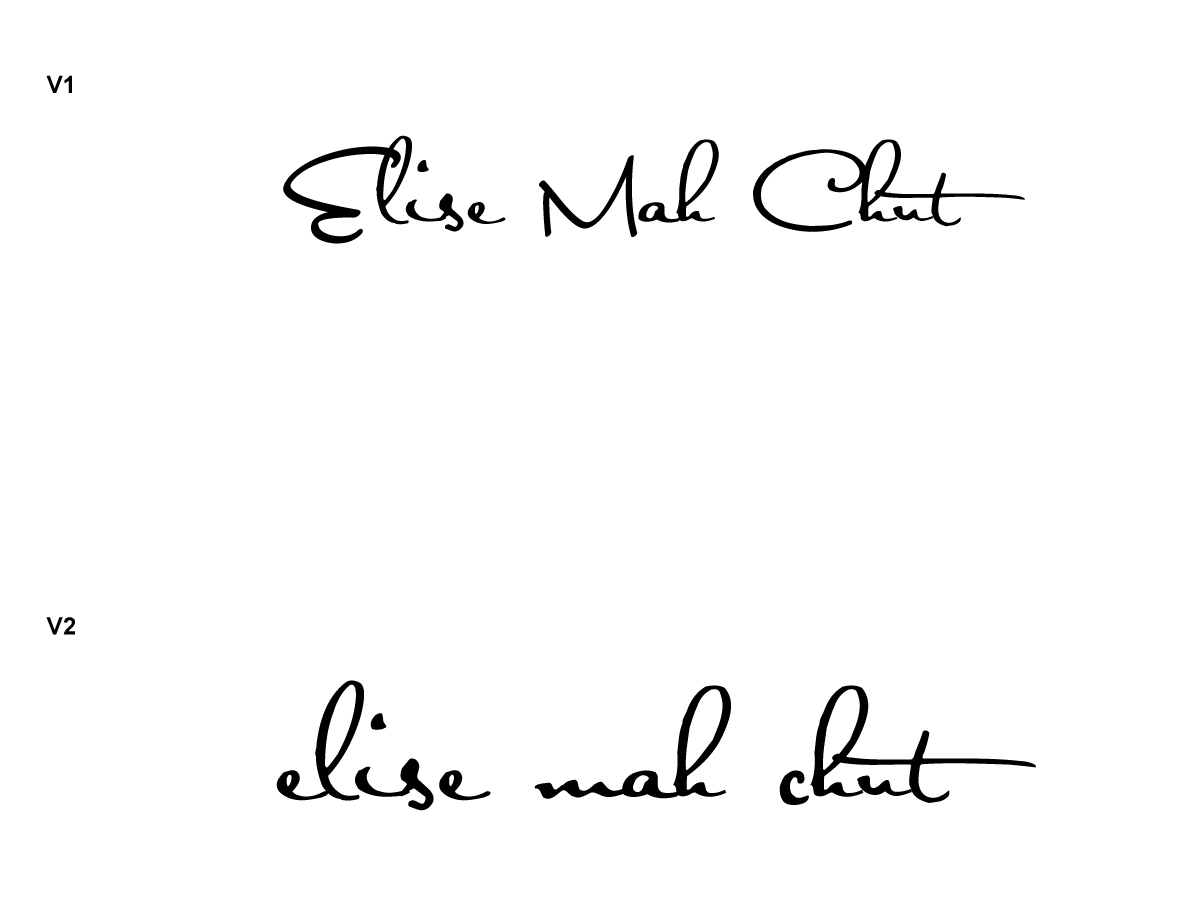 V1
Elise Mah Chut
V2
elise mah chut